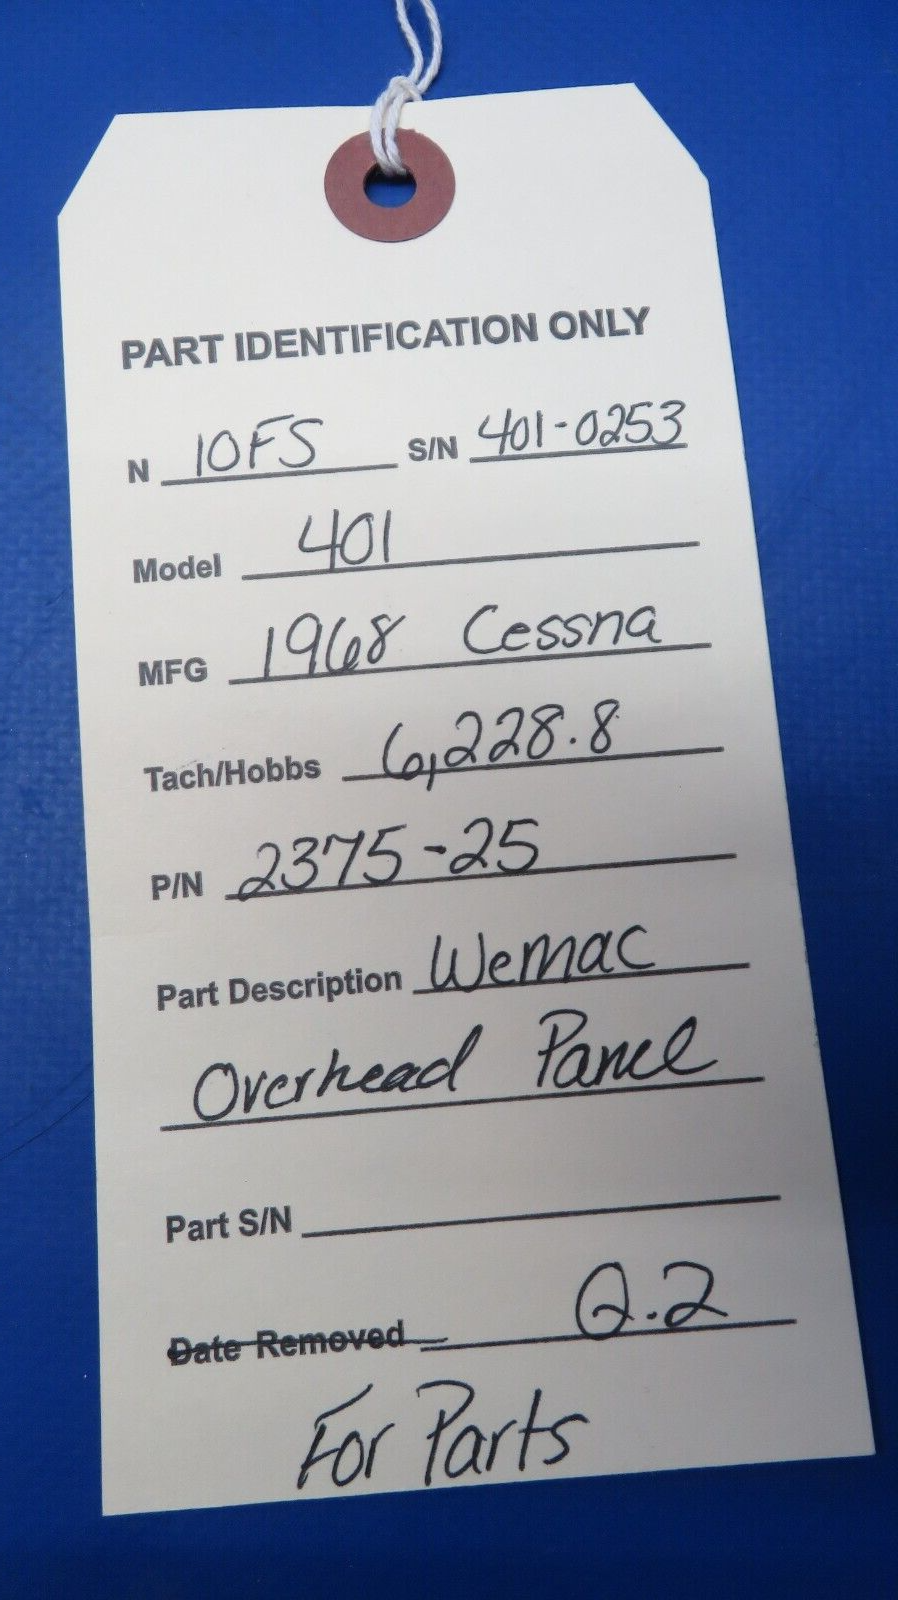 PART IDENTIFICATION ONLY
N 10FS S/N 401-0253
Model 401
MFG 1968 Cessna
Tach/Hobbs 6,228.8
P/N 2375-25
Part Description Wemac
Overhead Panel
Part S/N
Date Removed Q.2
For Parts